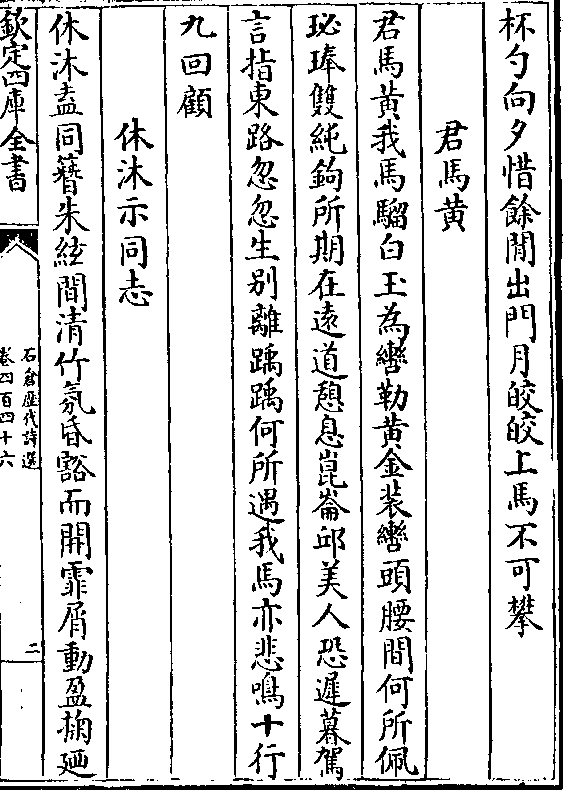 杯勺向夕惜餘閒出門月皎皎上馬不可攀
君馬黄
君馬黄我馬騮白玉為轡勒黄金装轡頭腰間何所佩
珌琫雙純鉤所期在逺道憩息崑崙邱美人恐遲暮駕
言指東路忽忽生别離踽踽何所遇我馬亦悲鳴十行
九回顧
休沐示同志
休沐盍同簮朱絃間清竹氛昏豁而開霏屑動盈掬廼
欽定四庫全書
石倉歴代詩選
卷四百四十六
二